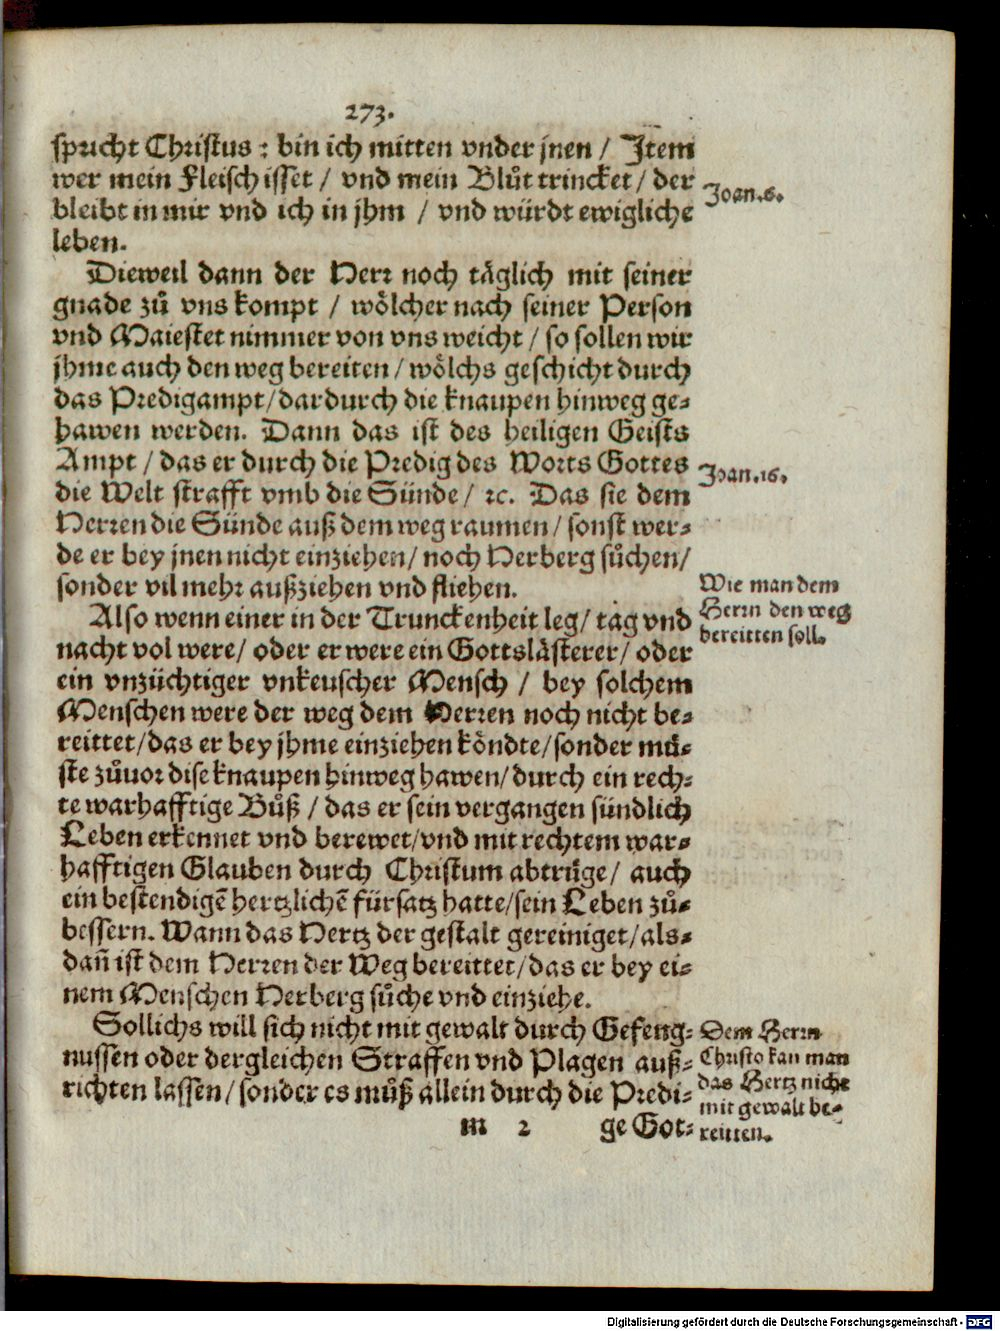 273.
spricht Christus: bin ich mitten vnder jnen / Item
wer mein Fleisch isset / vnd mein Blůt trincket / der
bleibt in mir vnd ich in jhm / vnd würdt ewigliche
leben.
Joan.6.
Dieweil dann der Herr noch täglich mit seiner
gnade zů vns kompt / wölcher nach seiner Person
vnd Maiestet nimmer von vns weicht / so sollen wir
jhme auch den weg bereiten / wölchs geschicht durch
das Predigampt / dardurch die knaupen hinweg ge-
hawen werden. Dann das ist des heiligen Geists
Ampt / das er durch die Predig des Worts Gottes
die Welt strafft vmb die Sünde / ꝛc. Das sie dem
Herren die Sünde auß dem weg raumen / sonst wer-
de er bey jnen nicht einziehen / noch Herberg sůchen /
sonder vil mehr außziehen vnd fliehen.
Joan.16.
Wie man dem
Herrn den weg
bereitten soll.
Also wenn einer in der Trunckenheit leg / tag vnd
nacht vol were / oder er were ein Gottslästerer / oder
ein vnzüchtiger vnkeuscher Mensch / bey solchem
Menschen were der weg dem Herren noch nicht be-
reittet / das er bey jhme einziehen köndte / sonder mů-
ste zůuor dise knaupen hinweg hawen / durch ein rech-
te warhafftige Bůß / das er sein vergangen sündlich
Leben erkennet vnd berewet / vnd mit rechtem war-
hafftigen Glauben durch Christum abtrüge / auch
ein bestendigē hertzlichē fürsatz hatte / sein Leben zů-
bessern. Wann das Hertz der gestalt gereiniget / als-
dañ ist dem Herren der Weg bereittet / das er bey ei-
nem Menschen Herberg sůche vnd einziehe.
Sollichs will sich nicht mit gewalt durch Gefeng-
nussen oder dergleichen Straffen vnd Plagen auß-
richten lassen / sonder es můß allein durch die Predi-
Dem Herrn
Christo kan man
das Hertz nicht
mit gewalt be-
reitten.
m 2 ge Got-
Digitalisierung gefördert durch die Deutsche Forschungsgemeinschaft - DFG